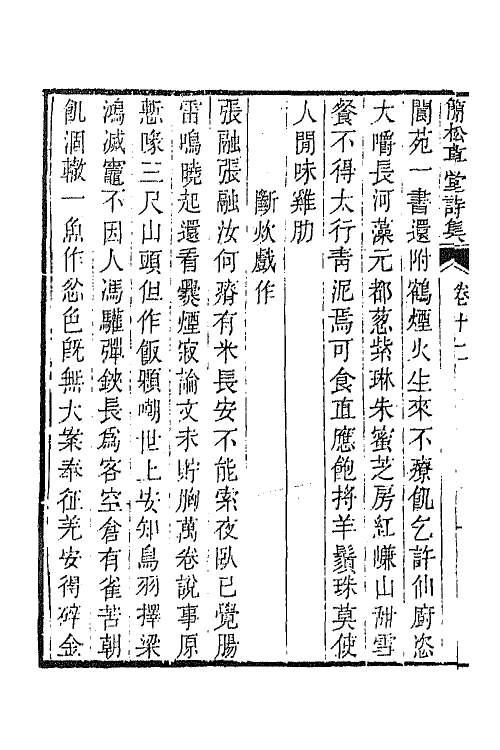 簡松草堂詩集 卷十二
閬苑一書還附鶴煙火生來不療飢乞許仙廚恣
大嚼長河藻元都蔥紫琳朱蜜芝房紅嵰山甜雪
餐不得太行靑泥焉可食直應飽捋羊鬚珠莫使
人閒味雞肋
斷炊戲作
張融張融汝何瘠有米長安不能索夜臥已覺腸
雷鳴曉起還看爨煙寂論文未貯胸萬卷說事原
慙喙三尺山頭但作飯顆嘲世上安知鳥羽擇梁
鴻滅竈不因人馮驩彈鋏長爲客空倉有雀苦朝
飢涸轍一魚作忿色旣無大案奉征羌安得碎金